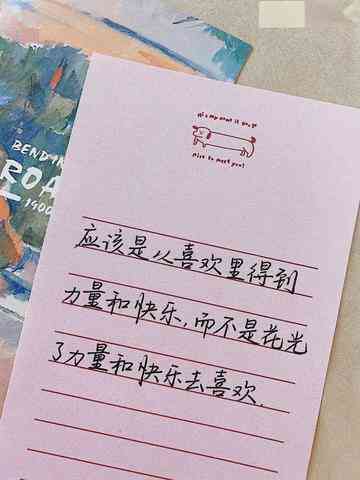 BEND IN
ROA
1900
nice to meet you!
应该是从喜欢里得到
力量和快乐,而不是花光
了力量和快乐去喜欢.